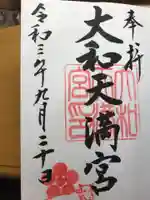 奉拝
大和天満宮
令和三年九月二十日